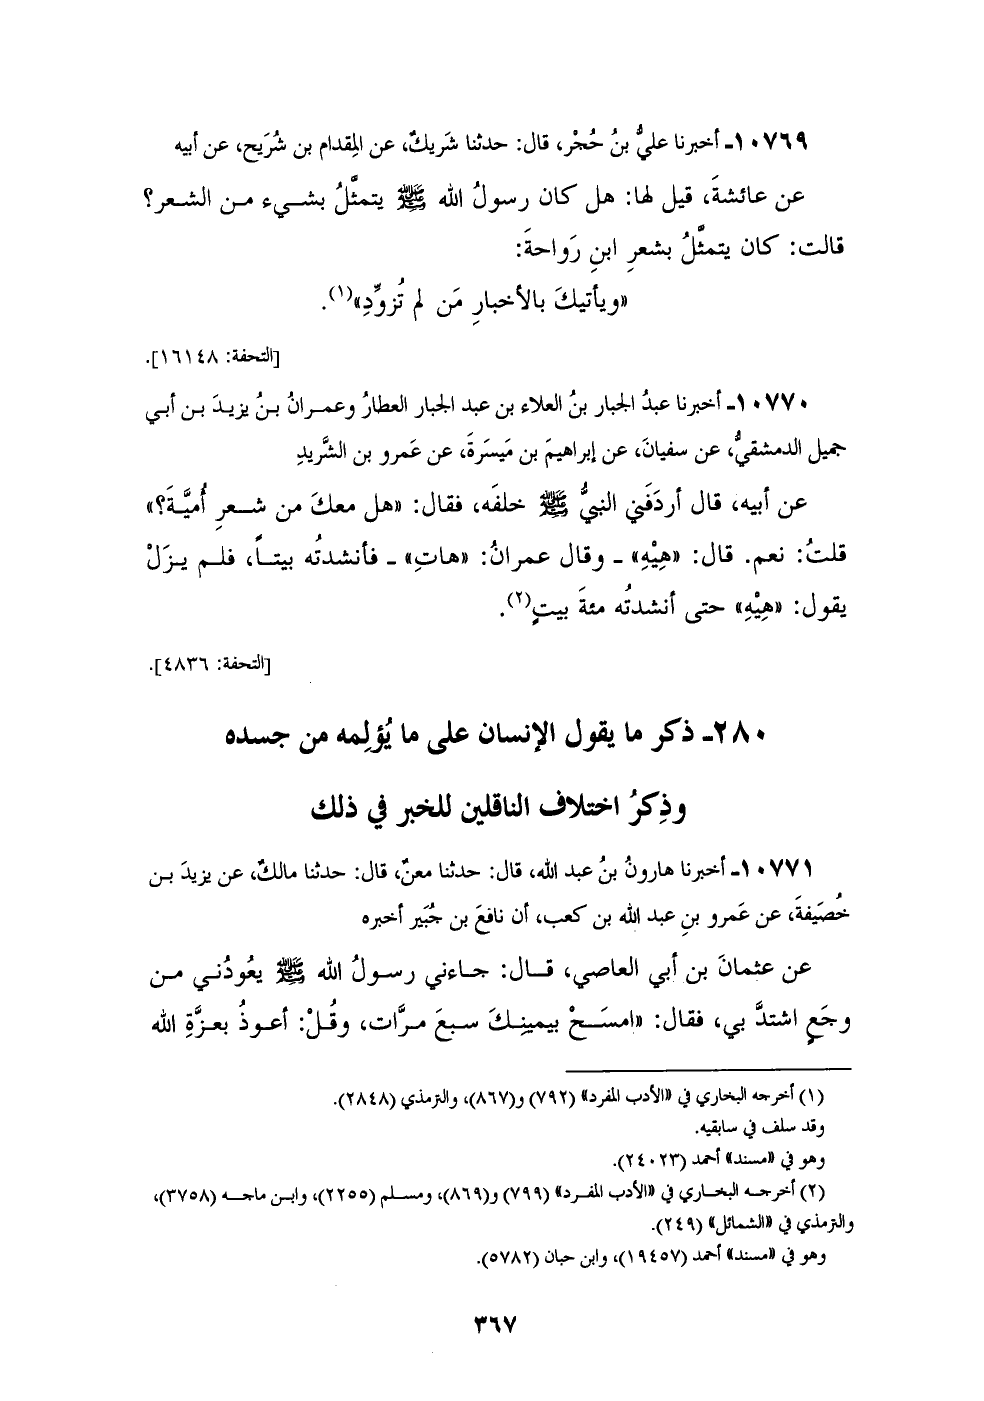 ١٠٧٦٩ـ أخبرنا عليُّ بنُ حُجْر، قال: حدثنا شَريكٌ، عن المِقدام بن شُرَيح، عن أبيه
عن عائشةَ، قيل لها: هل كان رسولُ الله ﷺ يتمثَّلُ بشيء من الشعر؟
قالت: كان يتمثَّلُ بشعرِ ابنِ رَواحةَ:
«ويأتيكَ بالأخبارِ مَن لم تُزوِّدِ»(١).
[التحفة: ١٦١٤٨].
١٠٧٧٠ـ أخبرنا عبدُ الجبار بنُ العلاء بن عبد الجبار العطارُ وعمرانُ بنُ يزيدَ بن أبي
جميل الدمشقيُّ، عن سفيانَ، عن إبراهيمَ بن مَيسَرةَ، عن عَمرو بن الشَّريدِ
عن أبيه، قال أردَفَني النبيُّ ﷺ خلفَه، فقال: «هل معكَ من شعرِ أُميَّةَ؟»
قلتُ: نعم. قال: «هِيْهِ» ـ وقال عمرانُ: «هاتِ» ـ فأنشدتُه بيتاً، فلم يزَلْ
يقول: «هِيْهِ» حتى أنشدتُه مئةَ بيتٍ(٢).
[التحفة: ٤٨٣٦].
٢٨٠ـ ذكر ما يقول الإنسان على ما يُؤلِمه من جسده
وذِكرُ اختلاف الناقلين للخبر في ذلك
١٠٧٧١ـ أخبرنا هارونُ بنُ عبد الله، قال: حدثنا معنٌ، قال: حدثنا مالكٌ، عن يزيدَ بن
خُصَيفةَ، عن عَمرو بنِ عبد الله بن كعب، أن نافعَ بن جُبَير أخبره
عن عثمانَ بن أبي العاصي، قال: جاءني رسولُ الله ﷺ يعُودُني من
وجَعٍ اشتدَّ بي، فقال: «امسَحْ بيمينِكَ سبعَ مرَّات، وقُلْ: أعوذُ بعزَّةِ الله
(١) أخرجه البخاري في «الأدب المفرد» (٧٩٢) و(٨٦٧)، والترمذي (٢٨٤٨).
وقد سلف في سابقيه.
وهو في «مسند» أحمد (٢٤٠٢٣).
(٢) أخرجه البخاري في «الأدب المفرد» (٧٩٩) و(٨٦٩)، ومسلم (٢٢٥٥)، وابن ماجه (٣٧٥٨)،
والترمذي في «الشمائل» (٢٤٩).
وهو في «مسند» أحمد (١٩٤٥٧)، وابن حبان (٥٧٨٢).
٣٦٧